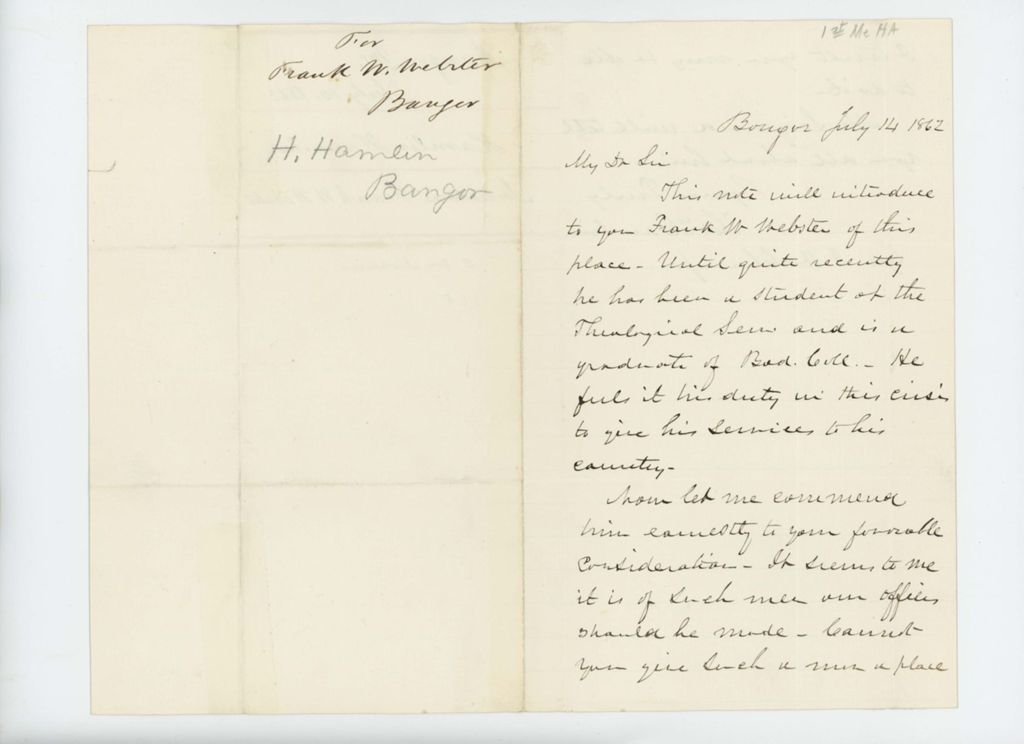 For
Frank W. Webster
Bangor
H. Hamlin
Bangor
1st Me HA
Bangor July 14 1862
My Dr Sir
This note will introduce
to you Frank W Webster of this
place - Until quite recently
he has been a student at the
Theological Sem. and is a
graduate of Bod. Coll. - He
feels it his duty in this crisis
to give his services to his
country -
Now let me commend
him earnestly to your favorable
consideration - It seems to me
it is of such men our officers
should be made - Cannot
you give such a man a place